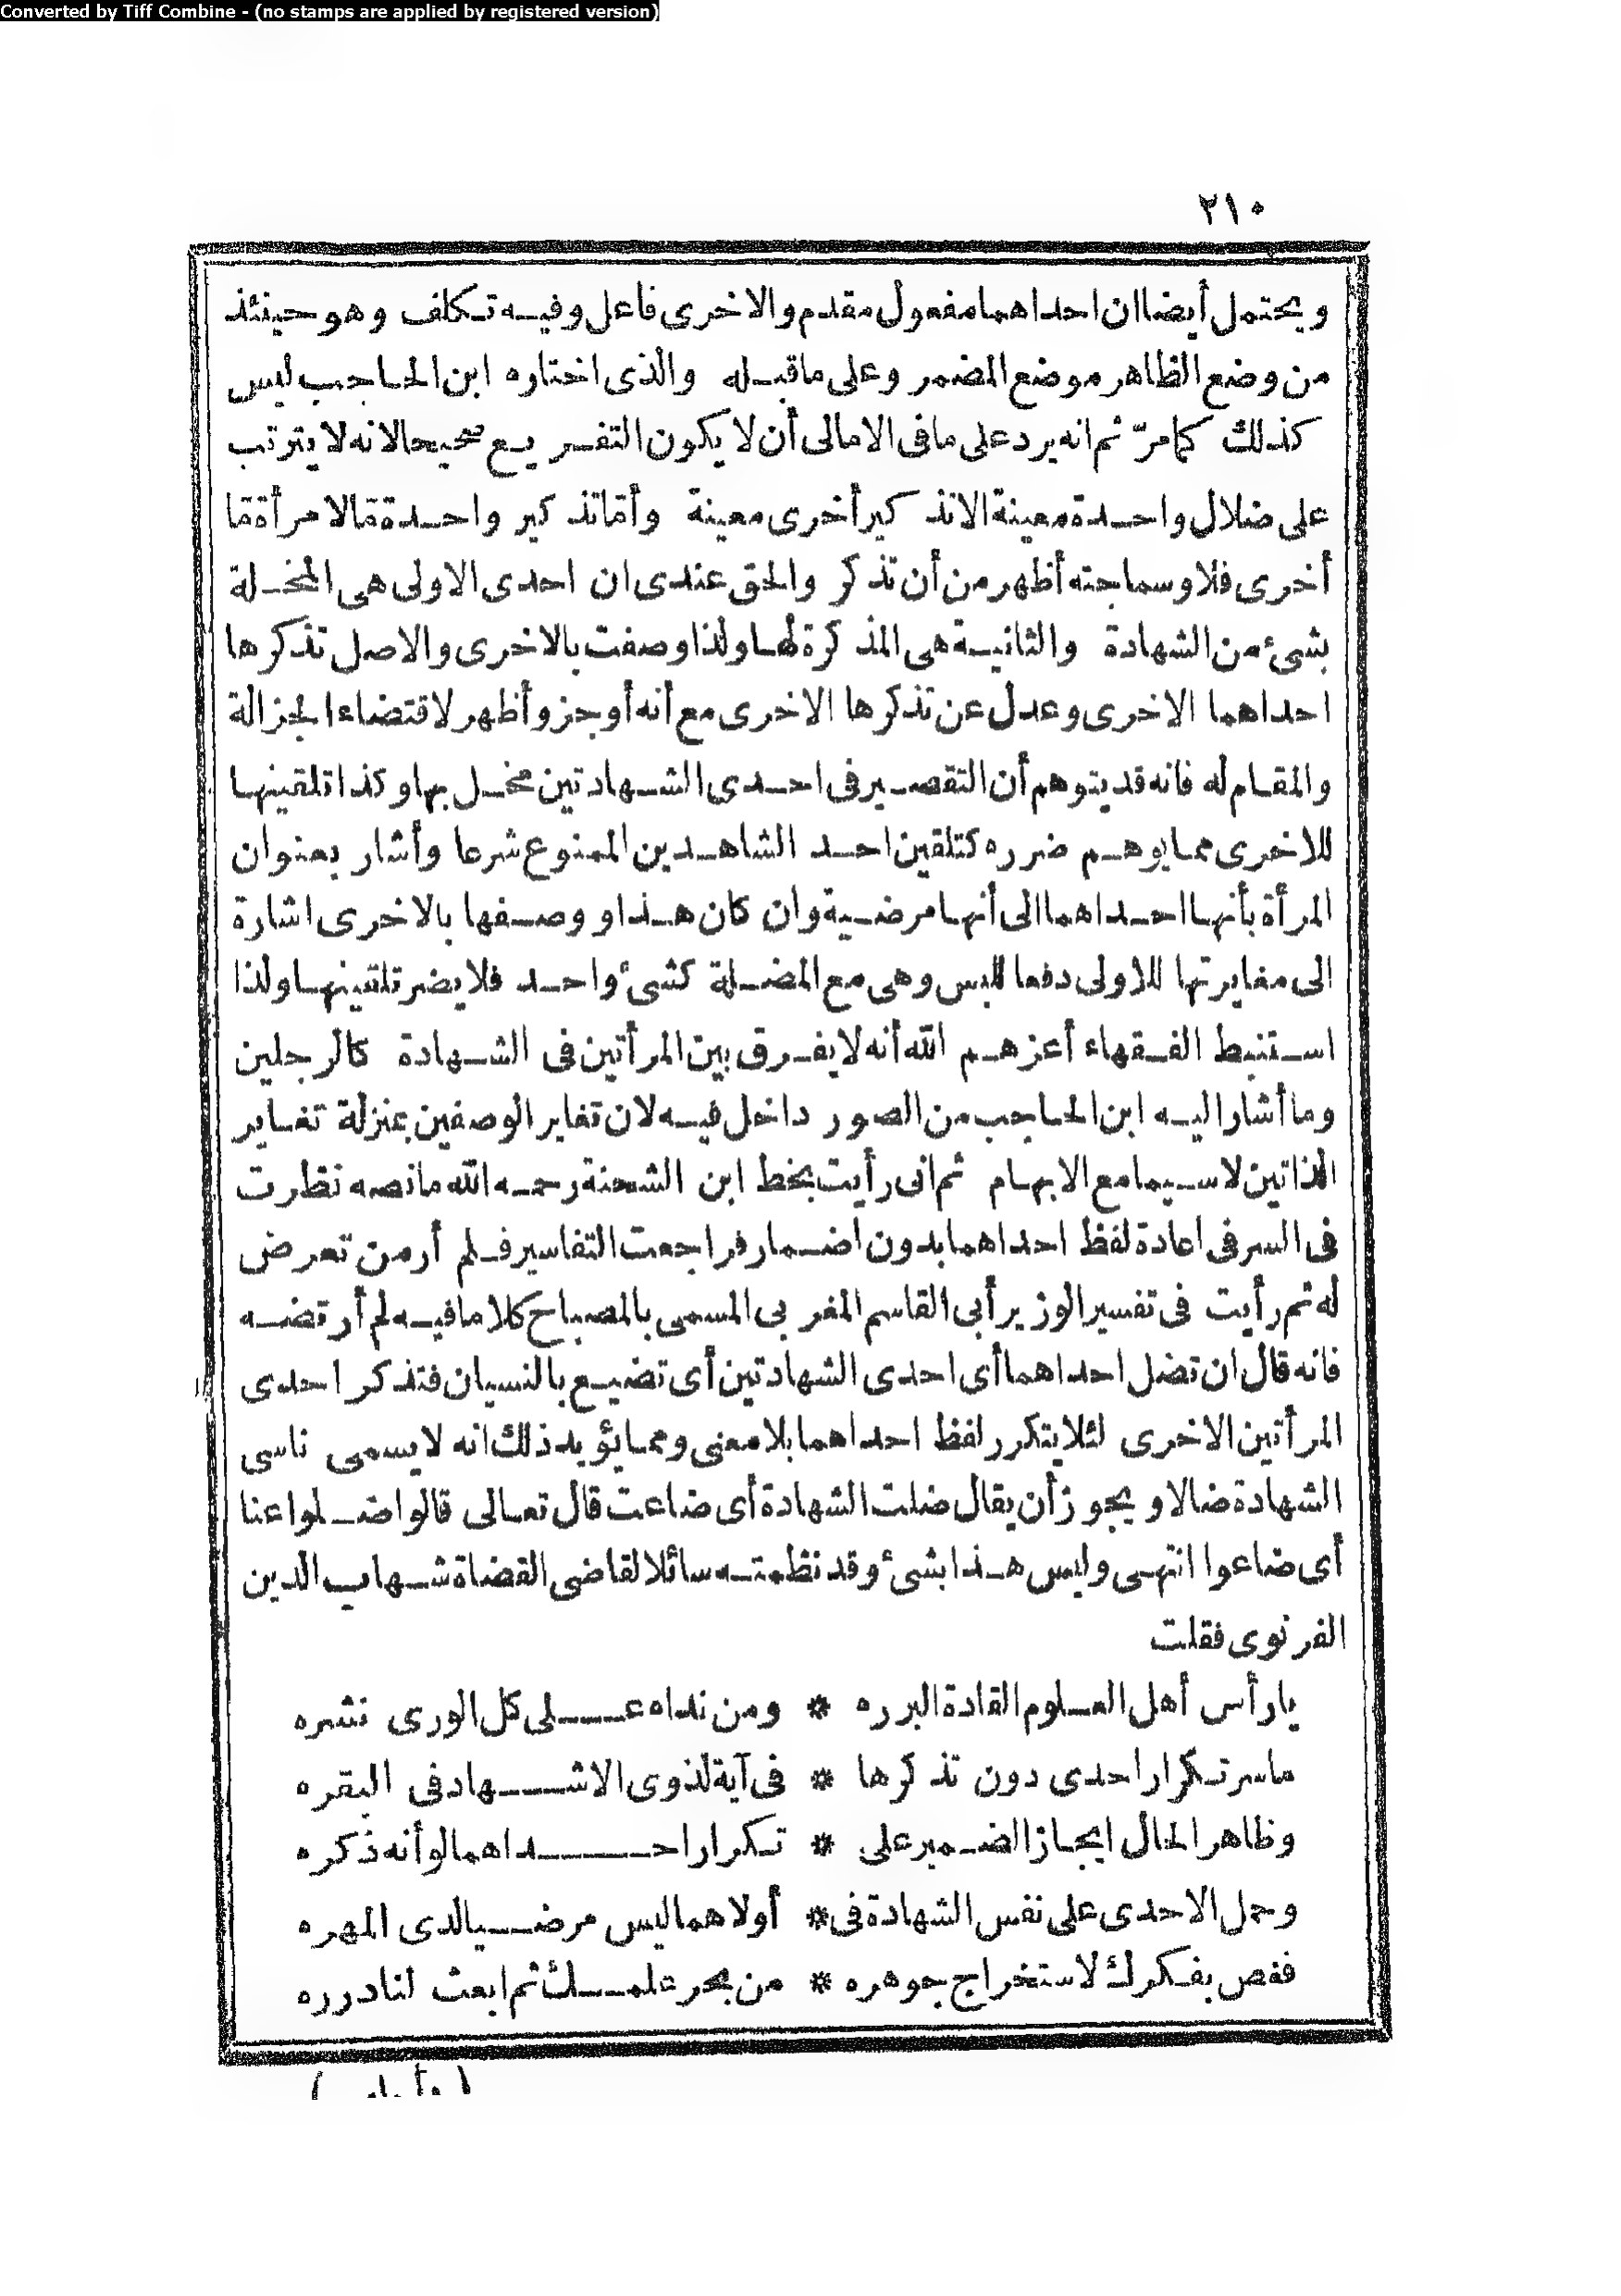 Converted by Tiff Combine - (no stamps are applied by registered version)
٢١٠
ويحتمل أيضا ان احداهما مفعول مقدم والاخرى فاعل وفيه تكلف وهو حينئذ
من وضع الظاهر موضع المضمر وعلى ما قبله والذى اختاره ابن الحاجب ليس
كذلك كما مرّ ثم انه يرد على ما فى الامالى أن لا يكون التفريع صحيحا لانه لا يترتب
على ضلال واحدة معينة الا تذكير أخرى معينة وأمّا تذكير واحدة مّا لامرأة مّا
أخرى فلا وسماجته أظهر من أن تذكر والحق عندى ان احدى الاولى هى المخلة
بشئ من الشهادة والثانية هى المذكرة لها ولذا وصفت بالاخرى والاصل تذكرها
احداهما الاخرى وعدل عن تذكرها الاخرى مع أنه أوجز وأظهر لاقتضاء الجزالة
والمقام له فانه قد يتوهم أن التقصير فى احدى الشهادتين مخل بها وكذا تلقينها
للاخرى مما يوهم ضرره كتلقين احد الشاهدين الممنوع شرعا وأشار بعنوان
المرأة بأنها احداهما الى أنها مرضية وان كان هذا ووصفها بالاخرى اشارة
الى مغايرتها للاولى دفعا للبس وهى مع المضلة كشئ واحد فلا يضر تلقينها ولذا
استنبط الفقهاء أعزهم الله أنه لا يفرق بين المرأتين فى الشهادة كالرجلين
وما أشار اليه ابن الحاجب من الصور داخل فيه لان تغاير الوصفين بمنزلة تغاير
الذاتين لا سيما مع الابهام ثم انى رأيت بخط ابن الشحنة رحمه الله ما نصه نظرت
فى السر فى اعادة لفظ احداهما بدون اضمار فراجعت التفاسير فلم أر من تعرض
له ثم رأيت فى تفسير الوزير أبى القاسم المغربى المسمى بالمصباح كلاما فيه لم أرتضه
فانه قال ان تضل احداهما أى احدى الشهادتين أى تضيع بالنسيان فتذكر احدى
المرأتين الاخرى لئلا يتكرر لفظ احداهما بلا معنى ومما يؤيد ذلك انه لا يسمى ناسى
الشهادة ضالا ويجوز أن يقال ضلت الشهادة أى ضاعت قال تعالى قالوا ضلوا عنا
أى ضاعوا انتهى وليس هذا بشئ وقد نظمته سائلا لقاضى القضاة شهاب الدين
الغزنوى فقلت
يا رأس أهل العلوم القادة البرره * ومن نداه على كل الورى نشره
ما سر تكرار احدى دون تذكرها * فى آية لذوى الاشهاد فى البقره
وظاهر الحال ايجاز الضمير على * تكرار احداهما لو أنه ذكره
وحمل الاحدى على نفس الشهادة فى * أولاهما ليس مرضيا لدى المهره
فغص بفكرك لاستخراج جوهره * من بحر علمك ثم ابعث لنا درره